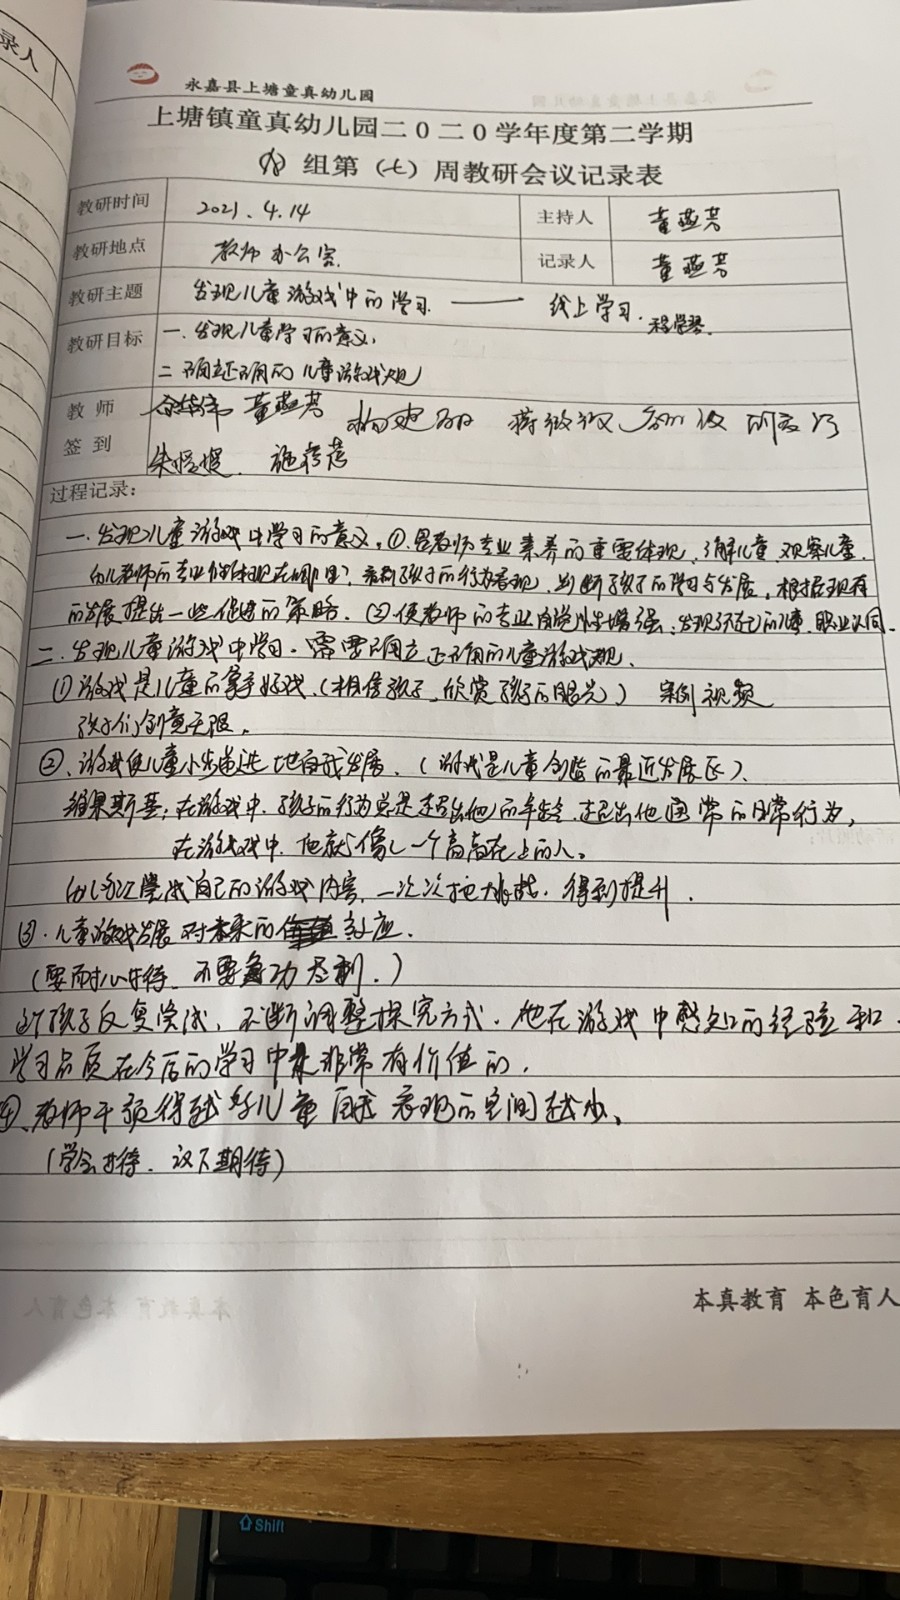 录人
永嘉县上塘童真幼儿园
上塘镇童真幼儿园二0二0学年度第二学期
组第（七）周教研会议记录表
教研时间 2021.4.14 主持人 董燕芳
教研地点 教师办公室. 记录人 董燕芳
教研主题 发现儿童游戏中的学习. —— 线上学习.
教研目标 一.发现儿童学习的意义,
二 确立正确的儿童游戏观
教师 董燕芳
签到
过程记录:
一.发现儿童游戏中学习的意义,①.是教师专业素养的重要体现,了解儿童.观察儿童.
幼儿教师的专业体现在哪里?看到孩子的行为表现,判断孩子的学习与发展,根据现有
的发展提出一些促进的策略.②使教师的专业自觉性增强.发现的儿童.职业认同.
二.发现儿童游戏中学习.需要确立正确的儿童游戏观.
①游戏是儿童的拿手好戏.(相信孩子.欣赏孩子的眼光) 案例视频
孩子们创意无限.
②.游戏使儿童小步递进地自我发展.(游戏是儿童创造的最近发展区).
维果斯基:在游戏中.孩子的行为总是超出他的年龄.超出他通常的日常行为,
在游戏中.他就像一个高高在上的人。
自己的游戏内容,一次次挑战.得到提升.
③.儿童游戏发展对未来的效应.
(要耐心等待.不要急功近利.)
这个孩子反复尝试,不断调整探究方式.他在游戏中的经验和
学习品质在今后的学习中是非常有价值的.
④.教师干预得越多儿童自我表现的空间越少。
(学会等待.放下期待)
本真教育 本色育人
Shift